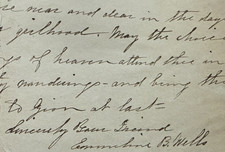 near and dear in the day
girlhood - May the choice
of heaven attend thee in
wanderings - and bring thee
to Zion at last -
Sincerely Your Friend
Emmeline B. Wells